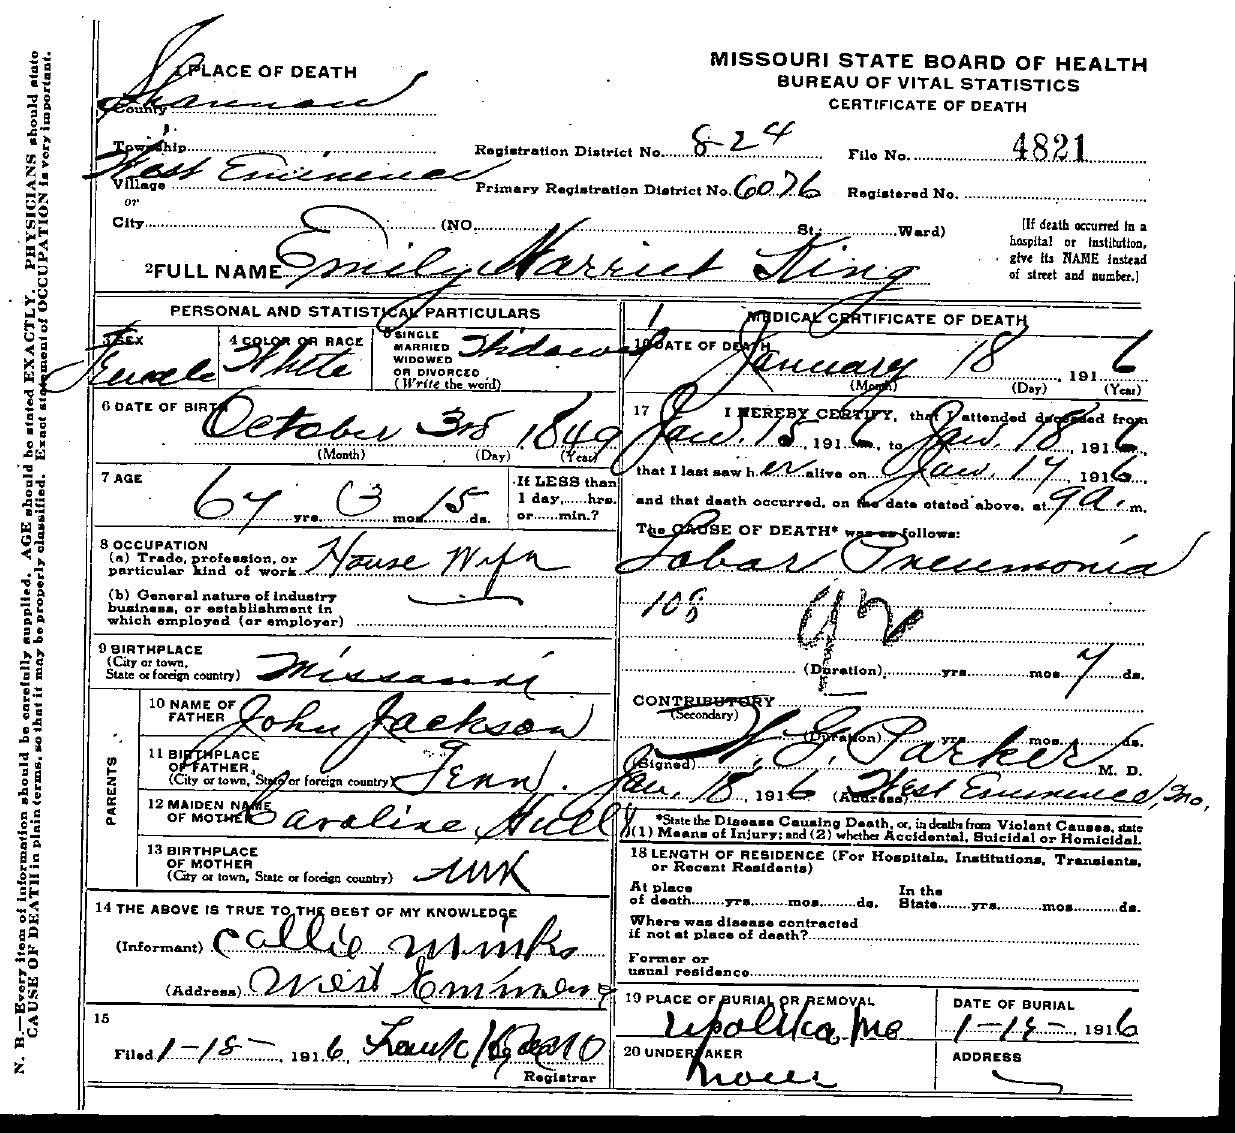 N. B.—Every item of information should be carefully supplied. AGE should be stated EXACTLY. PHYSICIANS should state
CAUSE OF DEATH in plain terms, so that it may be properly classified. Exact statement of OCCUPATION is very important.
MISSOURI STATE BOARD OF HEALTH
BUREAU OF VITAL STATISTICS
CERTIFICATE OF DEATH
1 PLACE OF DEATH
County Shannon
Township West Eminence
Village
or
City (NO. St.; Ward)
Registration District No. 824
File No. 4821
Primary Registration District No. 6076
Registered No.
[If death occurred in a
hospital or institution,
give its NAME instead
of street and number.]
2 FULL NAME Emily Harriet King
PERSONAL AND STATISTICAL PARTICULARS
3 SEX Female
4 COLOR OR RACE White
5 SINGLE
MARRIED
WIDOWED
OR DIVORCED
(Write the word) Widowed
6 DATE OF BIRTH October 3rd 1849
(Month) (Day) (Year)
7 AGE 67 yrs. 3 mos. 15 ds.
If LESS than
1 day, hrs.
or min.?
8 OCCUPATION
(a) Trade, profession, or
particular kind of work House Wife
(b) General nature of industry
business, or establishment in
which employed (or employer)
9 BIRTHPLACE
(City or town,
State or foreign country) Missouri
PARENTS
10 NAME OF
FATHER John Jackson
11 BIRTHPLACE
OF FATHER
(City or town, State or foreign country) Tenn.
12 MAIDEN NAME
OF MOTHER Caroline Hull
13 BIRTHPLACE
OF MOTHER
(City or town, State or foreign country) unk
14 THE ABOVE IS TRUE TO THE BEST OF MY KNOWLEDGE
(Informant) Callie Minks
(Address) West Eminence
15
Filed 1-18-, 1916, Frank
Registrar
MEDICAL CERTIFICATE OF DEATH
16 DATE OF DEATH January 18, 1916
(Month) (Day) (Year)
17 I HEREBY CERTIFY, that I attended deceased from
Jan. 15, 1916, to Jan. 18, 1916,
that I last saw her alive on Jan. 17, 1916
and that death occurred, on the date stated above, at 9 a. m.
The CAUSE OF DEATH* was as follows:
Lobar Pneumonia
108
92
(Duration) yrs. mos. 7 ds.
CONTRIBUTORY
(Secondary)
(Duration) yrs. mos. ds.
(Signed) W. G. Parker M. D.
Jan. 18, 1916 (Address) West Eminence, Mo.
*State the Disease Causing Death, or, in deaths from Violent Causes, state
(1) Means of Injury; and (2) whether Accidental, Suicidal or Homicidal.
18 LENGTH OF RESIDENCE (For Hospitals, Institutions, Transients,
or Recent Residents)
At place
of death yrs. mos. ds.
In the
State yrs. mos. ds.
Where was disease contracted
if not at place of death?
Former or
usual residence
19 PLACE OF BURIAL OR REMOVAL
Mo
DATE OF BURIAL
1-18-, 1916
20 UNDERTAKER
None
ADDRESS